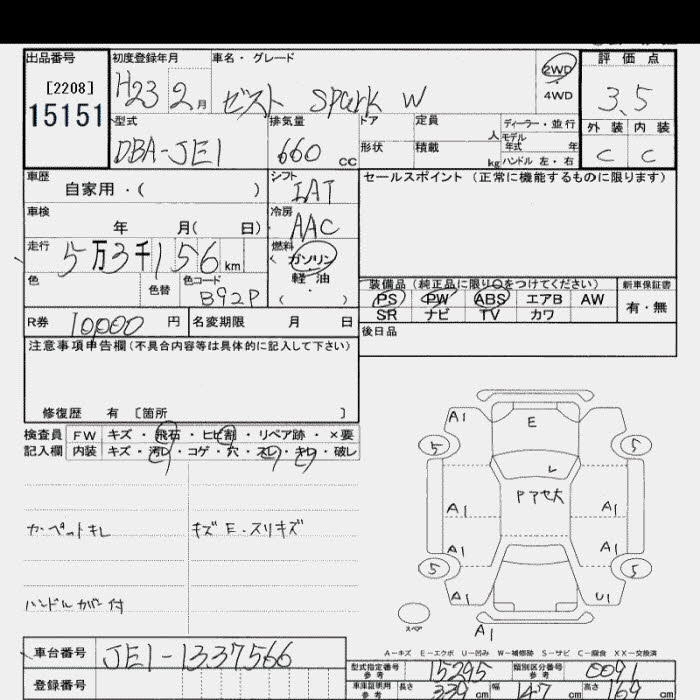 出品番号 初度登録年月 車名・グレード 2WD 評価点
[2208] H23 2月 ゼスト Spark W 4WD 3.5
15151 型式 排気量 ドア 定員 人 ディーラー・並行 外装 内装
DBA-JE1 660 cc 形状 積載 kg モデル年式 年 ハンドル 左・右 C C
車歴 シフト セールスポイント (正常に機能するものに限ります)
自家用・( ) IAT
車検 冷房
年 月( 日) AAC
走行 5万3千156 km 燃料 ガソリン
軽油
色 色替 色コード ( )
B92P
装備品(純正品に限り○をつけてください) 新車保証書
PS PW ABS エアB AW 有・無
SR ナビ TV カワ
R券 10,000 円 名変期限 月 日
後日品
注意事項申告欄(不具合内容等は具体的に記入して下さい)
修復歴 有 [箇所 ]
検査員 FW キズ・飛石・ヒビ割・リペア跡・×要
記入欄 内装 キズ・汚レ・コゲ・穴・スレ・キレ・破レ
A1 E
5 5
レ
Pアセ大
A1 A1
A1 A1
5 5
A1 U1
スペア
A1
カーペットキレ キズ E・スリキズ
ハンドルカバー付
A-キズ E-エクボ U-凹み W-補修跡 S-サビ C-腐食 XX-交換済
車台番号 JE1-1337566
型式指定番号 参考 15295 類別区分番号 参考 0091
登録番号
車庫証明用 参考 長さ 339 cm 幅 147 cm 高さ 169 cm